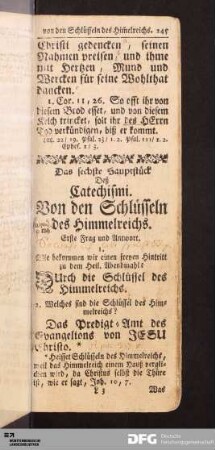 von den Schlüsseln des Himmelreichs. 245
Christi gedencken, seinen
Nahmen preisen, und ihme
mit Hertzen, Mund und
Wercken für seine Wohlthat
dancken.
1. Cor. 11, 26. So offt ihr von
diesem Brod esset, und von diesem
Kelch trincket, solt ihr des HErrn
Tod verkündigen, biß er kommt.
Luc. 22/ 19. Psal. 23/ 1. 2. Psal. 111/ 1. 2.
Ephes. 2/ 5.
Das sechste Hauptstück
Deß
Catechismi.
Von den Schlüsseln
des Himmelreichs.
Erste Frag und Antwort.
1.
Wie bekommen wir einen freyen Hintritt
zu dem Heil. Abendmahl?
Durch die Schlüssel des
Himmelreichs.
2. Welches sind die Schlüssel des Him-
melreichs?
Das Predigt-Amt des
Evangelions von JESU
Christo. *
* Heisset Schlüsseln des Himmelreichs,
weil das Himmelreich einem Hauß vergli-
chen wird, da Christus selbst die Thüre
ist, wie er sagt, Joh. 10, 7.
L 3 Was
DFG Deutsche
Forschungsgemeinschaft